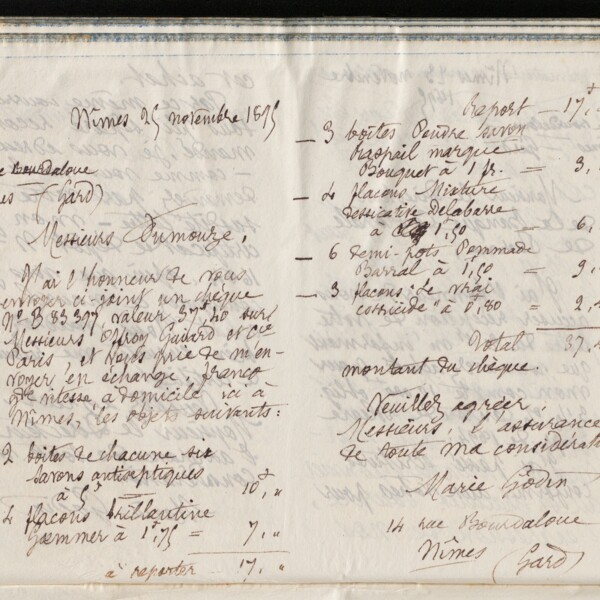 Nîmes 25 novembre 1895
e Bourdaloue
es (Gard)
Messieurs Dumouze,
J'ai l'honneur de vous
envoyer ci-joint un chèque
N° B 83397 valeur 37f,40 sur
Messieurs Offroy Guiard et Cie
Paris, et vous prie de m'en-
voyer, en échange, franco
gde vitesse à domicile ici à
Nîmes, les objets suivants:
2 boîtes de chacune six
savons antiseptiques
à 5f 10f, "
4 flacons Brillantine
Gommer à 1f,75 = 7, "
à reporter 17, "
Raport 17,
3 boîtes Poudre savon
Raspail marque
Bouquet à 1 fr. = 3,
4 flacons Mixture
dessicative Delabarre
à 1,50 = 6,
6 demi-pots Pommade
Barral à 1,50 = 9,
3 flacons "Le vrai
corricide" à 0,80 = 2,4
Total 37,4
montant du chèque.
Veuillez agréer,
Messieurs, l'assurance
de toute ma considérat
Marie Godin
14 rue Bourdaloue
Nîmes (Gard)